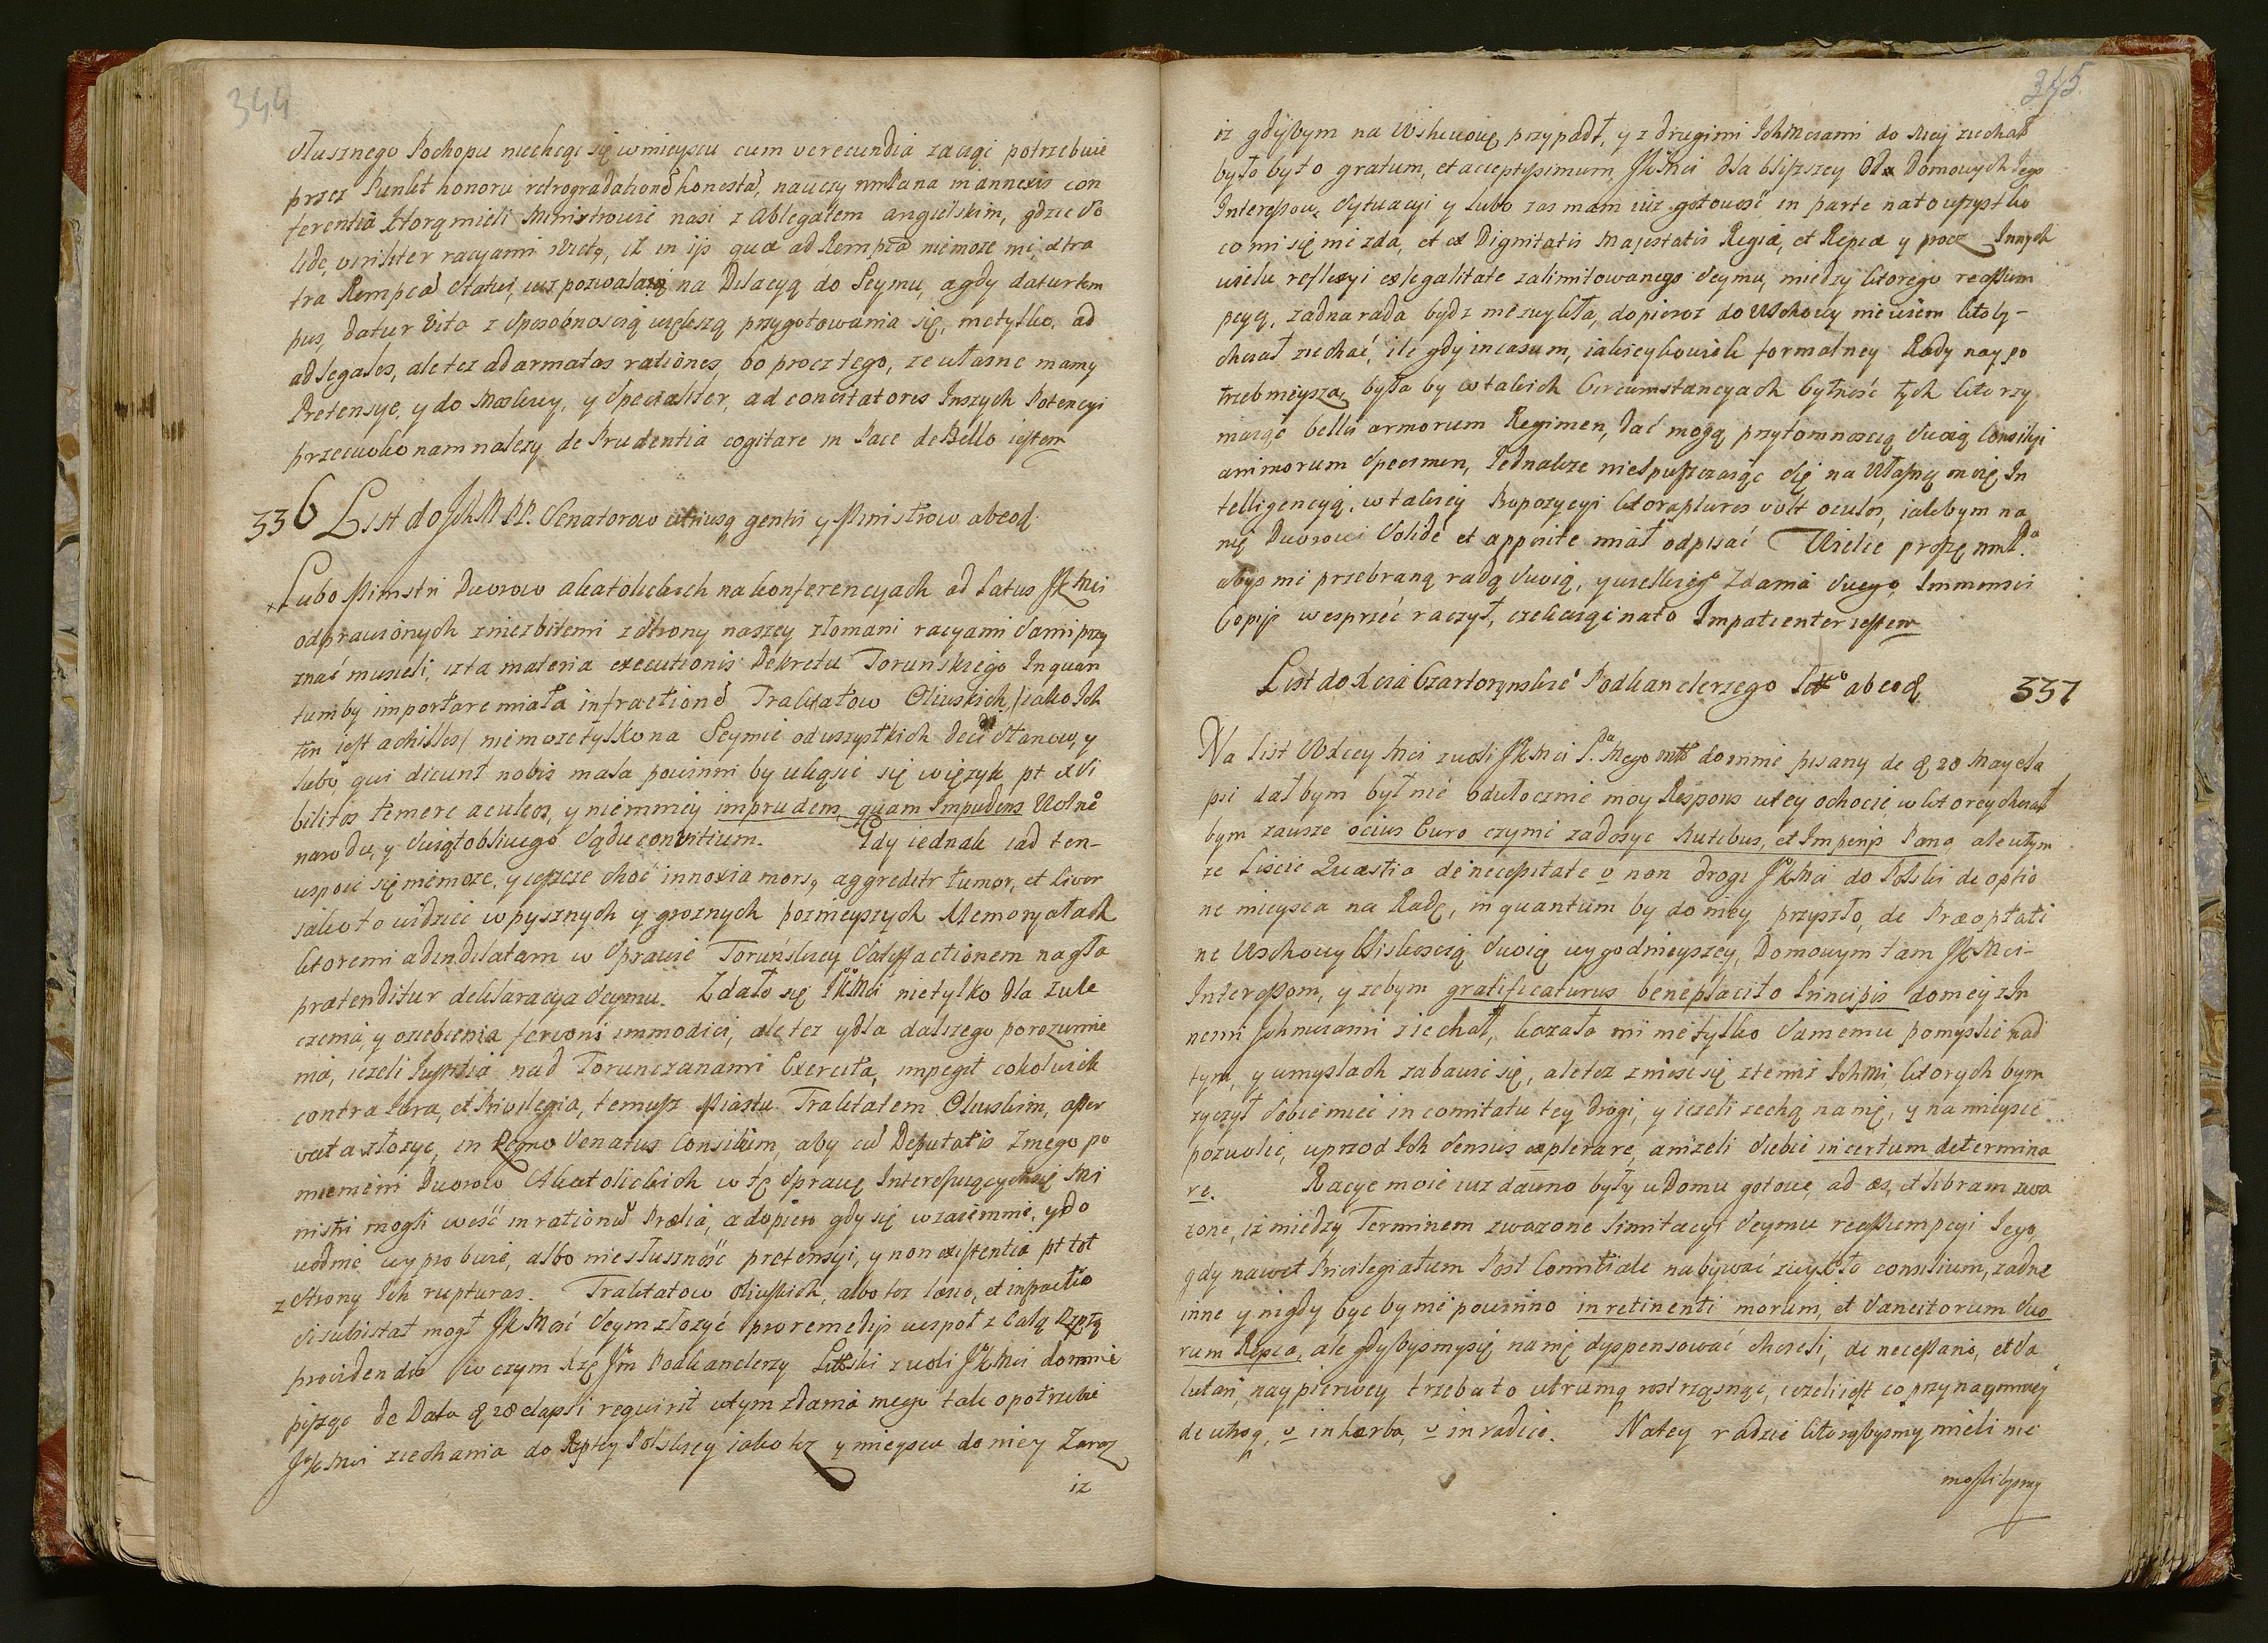 344
słusznego Pochopu niechcąc się w mieyscu cum verecundia zaciąć potrzebuie
przez Punkt honoru retrogradationē honestā, nauczy mPana in annexis con
ferentia ktorą mieli Ministrowie nasi z Ablegatem angielskim, gdzie so
lide, viriliter racyami
tra Rempcā status, iusz pozwalaią na Dilacyą do Seymu, a gdy datur tem
pus, datur vita z sposobnoscią większą przygotowania się, nietylko, ad
ad legales, ale tez ad armatas rationes, bo procz tego, ze własne mamy
Pretensye, y do Moskwy, y specialiter, ad concitatores Inszych Potencyi
przeciwko nam nalezy de Prudentia cogitare in Pace de Bello iestem
336 List do Ichm PP. Senatorow utriusq gentis y Ministrow ab eod.
Lubo Ministri Dworow akatolickich na konferencyach ad latus JKMci
odprawionych zniezbitemi z strony naszey złomani racyami sami przy
znać musieli, iz ta materia executionis Dekretu Toruńskiego Inquan
tum by importare miała infractionē Traktatow Oliwskich, /iako Ich
ten iest achilles/ niemoze tylko na Seymie od wszystkich Stanow, y
lubo, qui dicunt nobis mala powinni by ulęgnić się w ięzyk, pt
bilitos temere aculeos, y niemniey imprudens, quam Impudens Wolnē
narodu, y swiątobliwego sądu convitium. Gdy iednak iad ten
uspoić się niemoze, y ieszcze choć innoxia morsq aggreditr tumor, et livor
iako to widzieć w pysznych y groznych poznieyszych Memoryałach
ktoremi ad indilatam w sprawie Toruńskiey Satisfactionem nagła
prætenditur deklaracya Seymu. Zdało się JKMci nietylko dla zule
czenia, y oziebienia fervoris immodici, ale tez y dla dalszego porozumie
nia, iezeli Iustitia nad Torunczanami Exercita, impegit cokolwiek
contra Iura, et Privilegia, temusz Miastu Traktatem Oliwskim, asser
vata złozyc, in Regno Senatus Consilium, aby cū Deputatis Imego po
mienieni Dworow Akatolickich w tę sprawę Interessuiących się Mi
nistri mogli weść in rationū Prælia, a dopiero gdy się wzaiemnie, y do
wodnie wyprobuie, albo niesłuszność pretensyi, y non existentia pt tot
z strony Ich rupturas. Traktatow Oliwskich, albo tez læsio, et infractio
si subsistat mogł JKMość Seym złozyć pro remedijs wespoł z Całą Rzptą
providendis w czym Xzę Jm Podkanclerzy Littski z woli JKMci do mnie
pisząc de Data 28 elapsi requirit w tym zdania mego tak o potrzebie
JKMci ziechania do Rzptey Polskiey iako tez y mieyscu do niey Zaraz
iz
345
iz gdybym na Wschowę przypadł, y z drugimi Ichmciami do Niey ziechał
było by to gratum, et acceptissimum JKMci dla bliższey Domowych Iego
Interessow, sytuacyi y lubo zas mam iuż gotowość in parte na to wszystko
co mi się mi zda, et ex Dignitatis Majestatis Regiæ, et Repcæ y procz Innych
wielu reflexyi ex legalitate zalimitowanego Seymu, miedzy ktorego reassum
pcyą, zadna rada bydz niezwykła, dopieroz do Wschowy niewiem ktoby
chciał ziechać, ile gdy in casum, iakieykowiek formalney Rady naypo
trzebnieysza, byłaby w takich Circumstancyach bytność tych ktorzy
maiąc belli armorum Regimen, dać mogą, przytomnoscią swoią Consilij
animorum specimen, Iednakze niespuszczaiąc się na Własną moię In
telligencyą, w takiey Propozycyi ktora plures vult oculos, iakbym na
nię Dworowi solide et apposite miał odpisać Wielce proszę mmPa
abyś mi przebraną radą swoią, y wielkiego zdania swego, Immensis
Copijs wesprzeć raczył, czekaiąc na to Impatienter iestem
List do Xcia Czartoryskie Podkanclerzego Litto ab eod. 337
Na list WXcey Mci z woli JKMci Pa Mego mtto do mnie pisany de 20 May ela
psi dałbym był nie odwłocznie moy Respons w tey ochocie, w ktorey chciał
bym zawsze ocius Euro czynić zadosyc Nutibus, et Imperijs Pana, ale w tym
ze Liscie Quæstia de necessitate v non drogi JKMci do Polski de optio
ne mieysca na Radę, inquantum by do niey przyszło, de Præoptati
ne Wschowy bliskoscią swoią wygodnieyszey, Domowym tam JKMci
Interessom, y zebym gratificaturus beneplacito Principis do niey z In
nemi Ichmciami ziechał, kazała mi nietylko samemu pomyslić nad
tym, y umyslach zabawić się, ale tez zniesć się z temiz Ichmci, ktorych bym
zyczył sobie mieć in comitatu tey drogi, y iezeli zechą na nię, y na mieysce
pozwolić, uprzod Ich sensus explorare, anizeli siebie in certum determina
re. Racye moie iuz dawno były w Domu gotowe, ad æs, et libram zwa
zone, iz miedzy Terminem zwazone limitacyi Seymu reassumpcyi Iego,
gdy nawet Privilegiatum Post Comitiale nabywać zwykło consilium, zadne
inne y nigdy być by nie powinno in retinenti morum, et sancitorum suo
rum Repcæ, ale gdybysmy się na nię dyspensować chcieli, de necessario, et sa
lutari, naypierwey trzeba to utrumq rostrząsnąć, iezeli iest co przynaymniey
de utroq, v in herba, v in radice. Na tey radzie ktorąbysmy mieli nie
moglibysmy